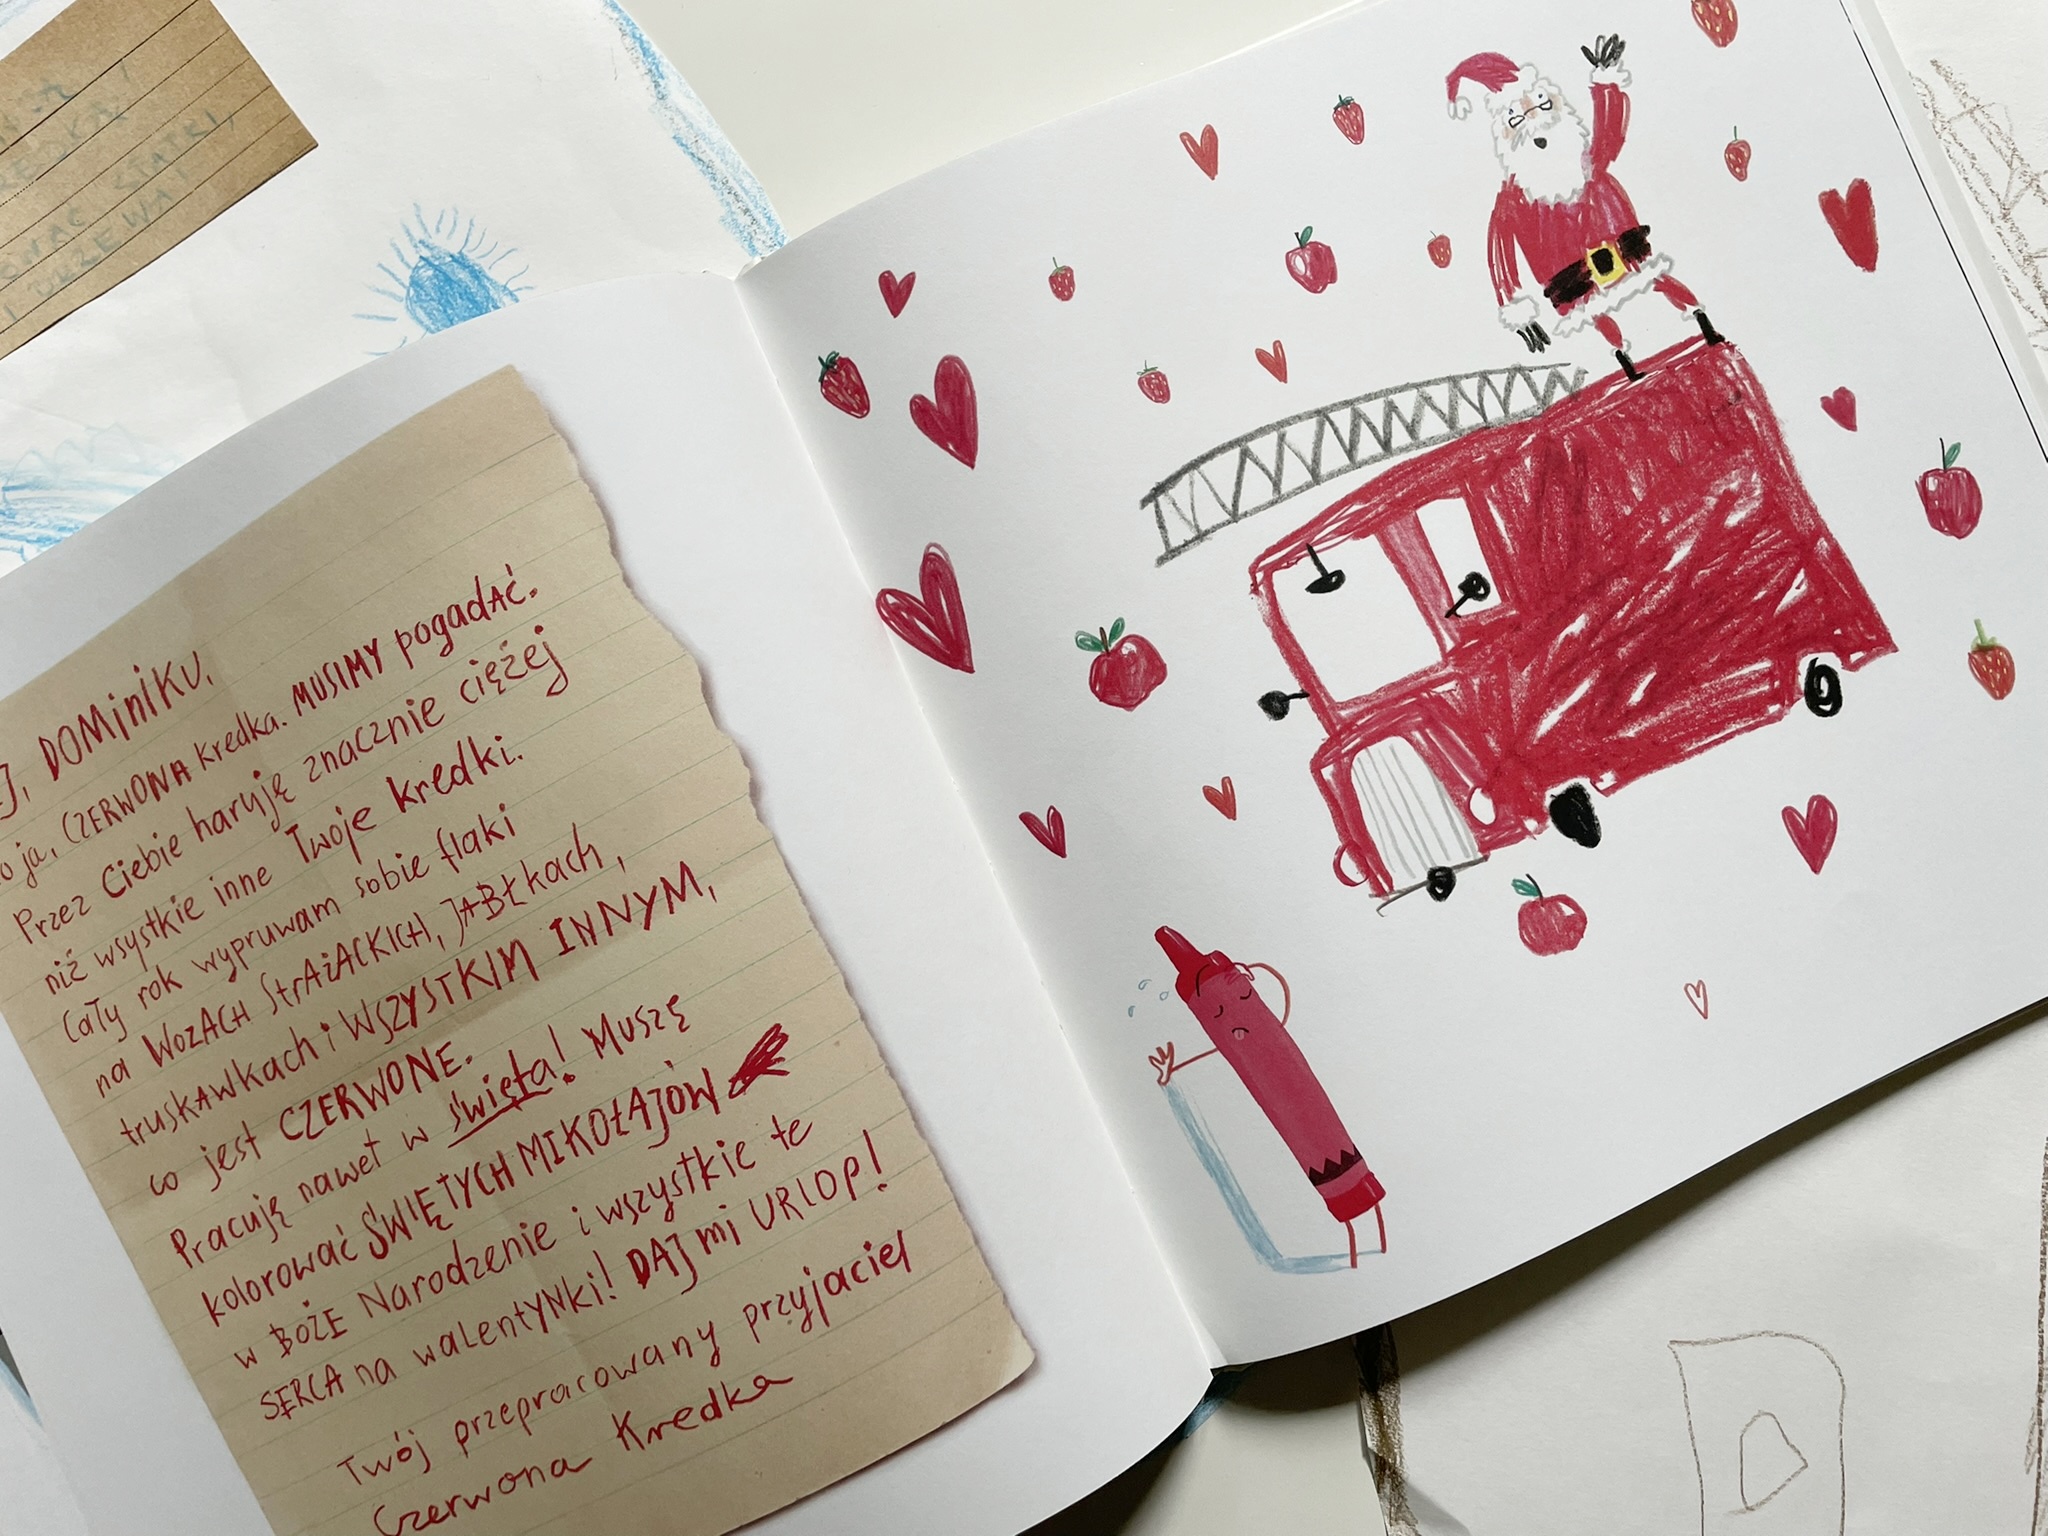 DOMiNiKU,
ja, CZERWONA kredka. MUSIMY pogadAĆ.
Przez Ciebie haruję znacznie ciężej
niż wszystkie inne Twoje kredki.
Cały rok wypruwam sobie flaki
na WOZACH StrAżACKICH, JABŁkach,
truskAwkach i WSZYSTKIM INNYM,
co jest CZERWONE.
Pracuję nawet w święta! Muszę
kolorować ŚWIĘTYCH MIKOŁAJÓW
w BOŻE Narodzenie i wszystkie te
SERCA na walentyNki! DAJ mi URLOP!
Twój przepracowany przyjaciel
Czerwona Kredka